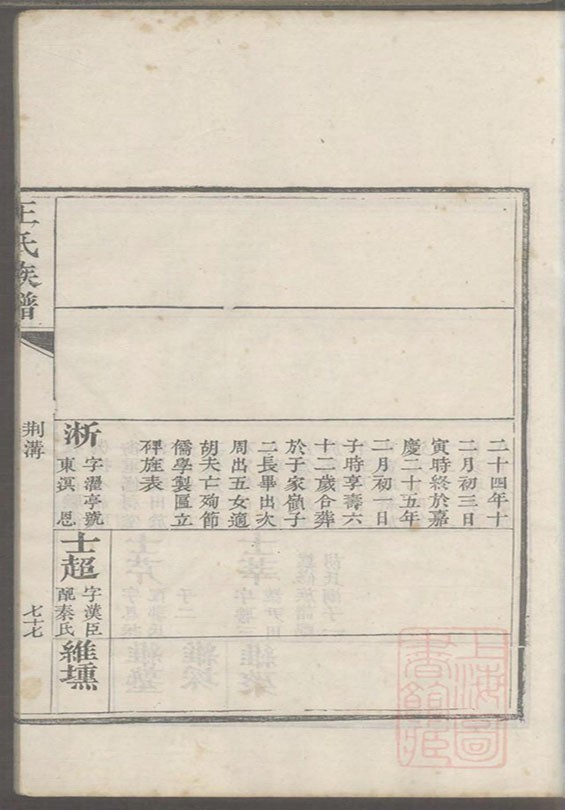 二十四年十
二月初三日
寅時終於嘉
慶二十五年
二月初一日
子時享壽六
十二歲合葬
於于家嶺子
二長畢出次
周出五女適
胡夫亡殉節
儒學製匾立
碑旌表
淅
字灑亭號
東溟 恩
士超
字漢臣
配秦氏
維壎
王氏族譜
荆溝
七十七
上海圖
書館藏